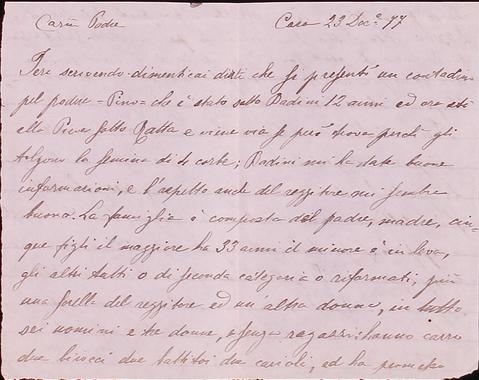 Carm Padre Casa 23 Dec.e 77
Ieri scrivendo dimenticai dirti che si presentò un contadino
pel podere Pino che è stato sotto Badini 12 anni ed ora sta
alla Pieve sotto Ratta e viene via se però trova perchè gli
tolgono la semina di 4 corbe; Badini mi ha date buone
informazioni, e l'aspetto anche del reggitore mi sembra
buono. La famiglia è composta del padre, madre, cin=
que figli il maggiore ha 33 anni il minore è in leva,
gli altri tutti o di seconda categoria o riformati, più
una sorella del reggitore ed un'altra donna, in tutto
sei uomini e tre donne, senza ragazzi: hanno carro
due birocci due carioli, ed ha